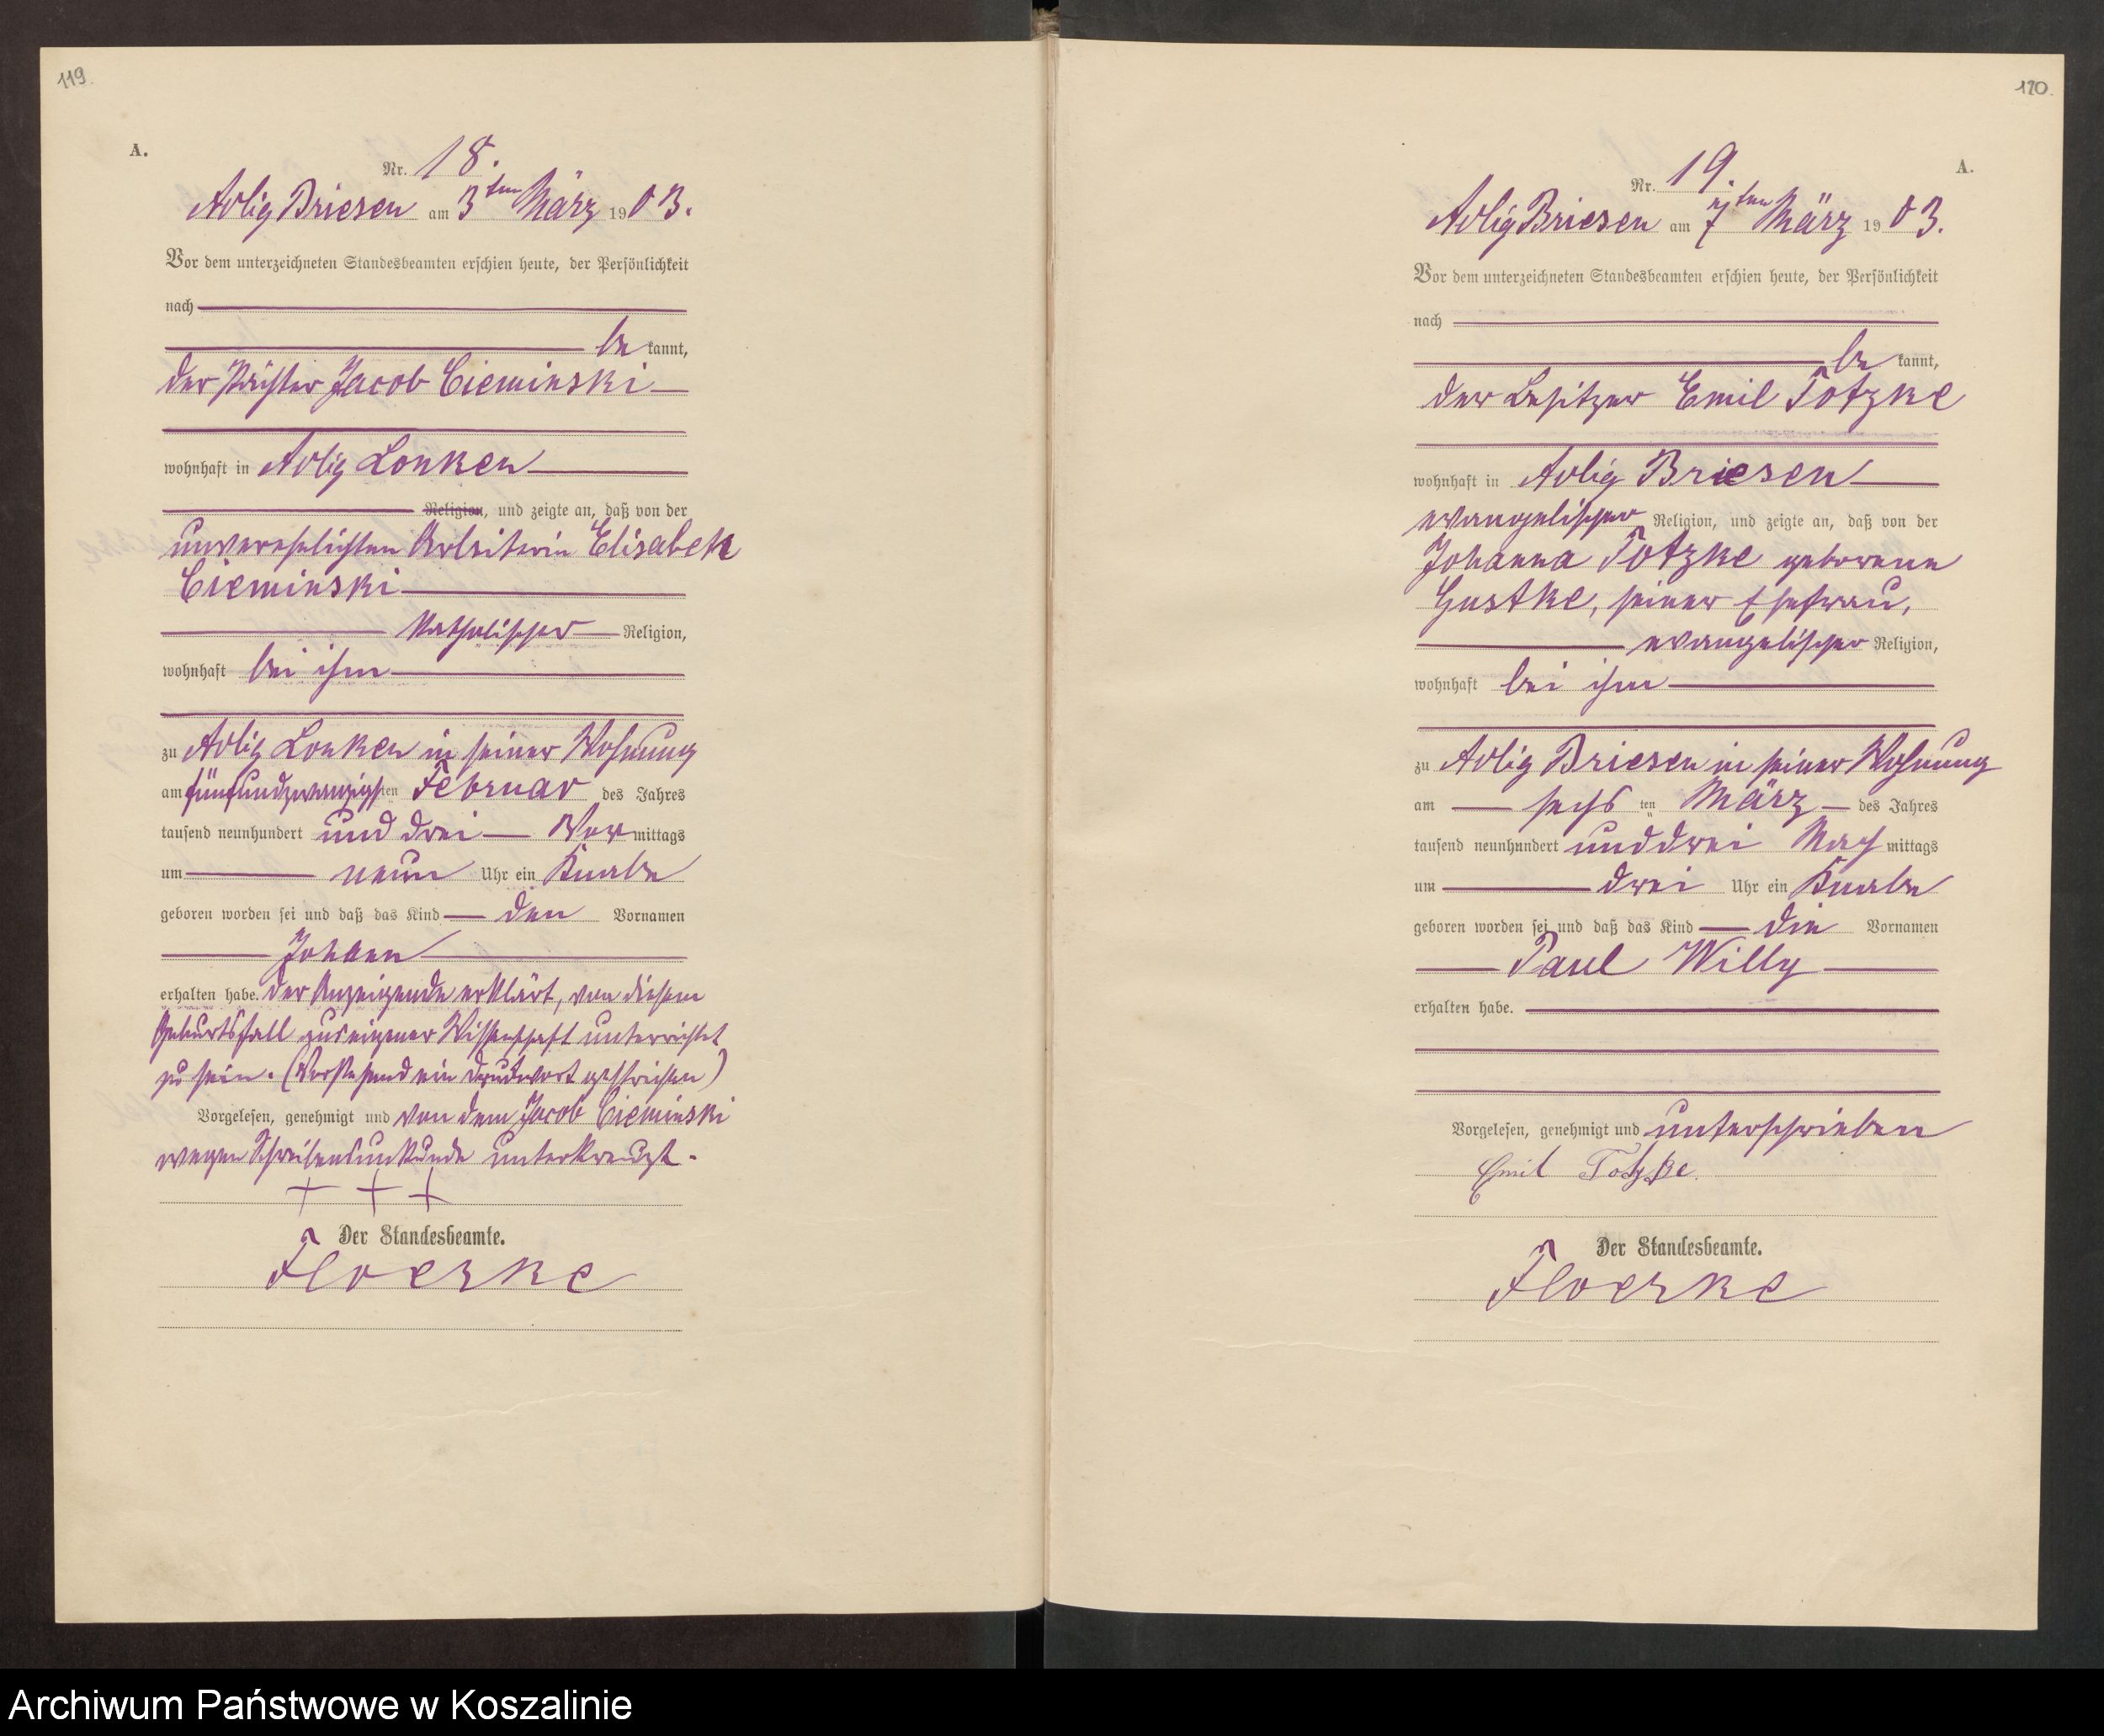 119.
A.
Nr. 18.
Adlig Briesen am 3ten März 1903.
Vor dem unterzeichneten Standesbeamten erschien heute, der Persönlichkeit
nach
be kannt,
der Jacob Cieminski
wohnhaft in Adlig Lonken
Religion, und zeigte an, daß von der
unverehelichten Arbeiterin Elisabeth
Cieminski
katholischer Religion,
wohnhaft bei ihm
zu Adlig Lonken in seiner Wohnung
am fünfundzwanzigsten Februar des Jahres
tausend neunhundert und drei Vormittags
um neun Uhr ein Knabe
geboren worden sei und daß das Kind den Vornamen
Johann
erhalten habe. Der Anzeigende erklärt, von diesem
Geburtsfall aus eigener Wissenschaft unterrichtet
zu sein. (Vorstehend ein Druckwort gestrichen)
Vorgelesen, genehmigt und von dem Jacob Cieminski
wegen Schreibensunkunde unterkreuzt.
+ + +
Der Standesbeamte.
Floerke
120.
A.
Nr. 19.
Adlig Briesen am 7ten März 1903.
Vor dem unterzeichneten Standesbeamten erschien heute, der Persönlichkeit
nach
be kannt,
der Besitzer Emil Totzke
wohnhaft in Adlig Briesen
evangelischer Religion, und zeigte an, daß von der
Johanna Totzke geborene
Gustke, seiner Ehefrau,
evangelischer Religion,
wohnhaft bei ihm
zu Adlig Briesen in seiner Wohnung
am sechsten März des Jahres
tausend neunhundert und drei Nachmittags
um drei Uhr ein Knabe
geboren worden sei und daß das Kind die Vornamen
Paul Willy
erhalten habe.
Vorgelesen, genehmigt und unterschrieben
Emil Totzke.
Der Standesbeamte.
Floerke
Archiwum Państwowe w Koszalinie